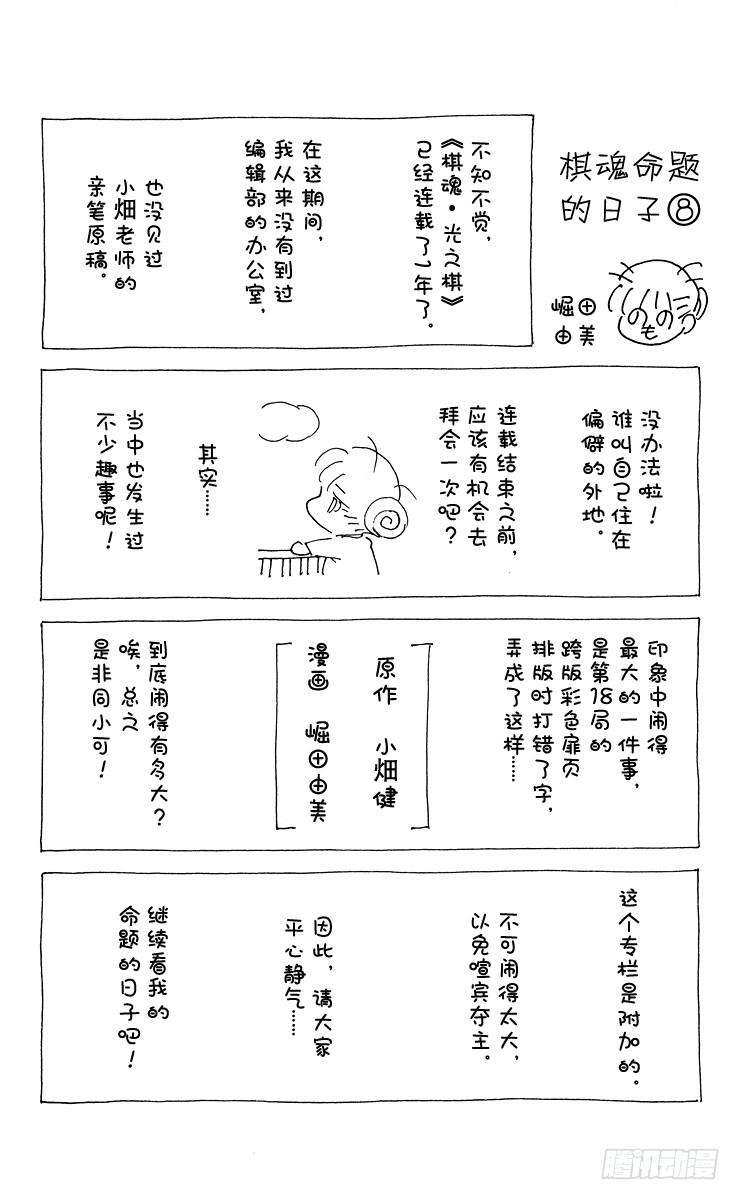 棋魂命题
的日子⑧
崛田
由美
不知不觉，
《棋魂·光之棋》
已经连载了7年了。
在这期间，
我从来没有到过
编辑部的办公室，
也没见过
小畑老师的
亲笔原稿。
没办法啦！
谁叫自己住在
偏僻的外地。
连载结束之前，
应该有机会去
拜会一次吧？
其实……
当中也发生过
不少趣事呢！
印象中闹得
最大的一件事，
是第18局的
跨版彩色扉页
排版时打错了字，
弄成了这样……
原作 小畑健
漫画 崛田由美
到底闹得有多大？
唉，总之
是非同小可！
这个专栏是附加的。
不可闹得太大，
以免喧宾夺主。
因此，请大家
平心静气……
继续看我的
命题的日子吧！
腾讯动漫